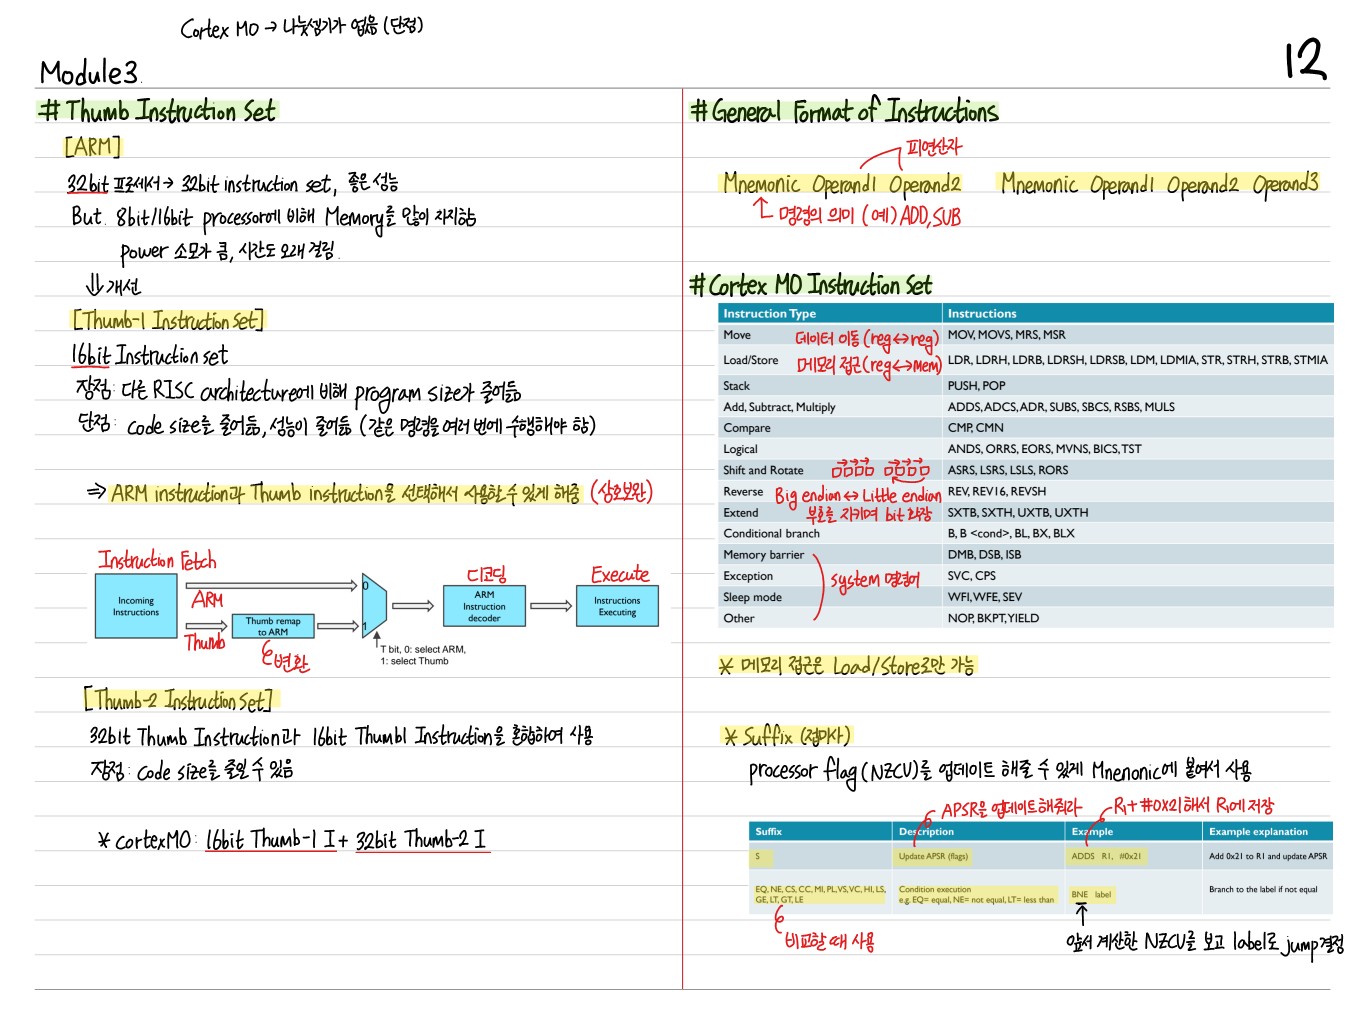 Cortex M0 → 나눗셈기가 없음 (단점)
12
Module3.
# Thumb Instruction Set
[ARM]
32bit 프로세서 → 32bit instruction set, 좋은 성능
But. 8bit/16bit processor에 비해 Memory를 많이 차지함
power 소모가 큼, 시간도 오래 걸림.
⇓ 개선
[Thumb-1 Instruction set]
16bit Instruction set
장점: 다른 RISC architecture에 비해 program size가 줄어듦
단점: code size를 줄어듦, 성능이 줄어듦 (같은 명령을 여러 번에 수행해야 함)
⇒ ARM instruction과 Thumb instruction을 선택해서 사용할 수 있게 해줌 (상호보완)
Instruction Fetch
Incoming Instructions
ARM
Thumb
Thumb remap to ARM
변환
0
1
T bit, 0: select ARM,
1: select Thumb
디코딩
ARM Instruction decoder
Execute
Instructions Executing
[Thumb-2 Instruction Set]
32bit Thumb Instruction과 16bit Thumb1 Instruction을 혼합하여 사용
장점: code size를 줄일 수 있음
* cortexM0: 16bit Thumb-1 I + 32bit Thumb-2 I
# General Format of Instructions
피연산자
Mnemonic Operand1 Operand2 Mnemonic Operand1 Operand2 Operand3
명령의 의미 (예) ADD, SUB
# Cortex M0 Instruction Set
Instruction Type Instructions
Move 데이터 이동 (reg↔reg) MOV, MOVS, MRS, MSR
Load/Store 메모리 접근 (reg↔Mem) LDR, LDRH, LDRB, LDRSH, LDRSB, LDM, LDMIA, STR, STRH, STRB, STMIA
Stack PUSH, POP
Add, Subtract, Multiply ADDS, ADCS, ADR, SUBS, SBCS, RSBS, MULS
Compare CMP, CMN
Logical ANDS, ORRS, EORS, MVNS, BICS, TST
Shift and Rotate ASRS, LSRS, LSLS, RORS
Reverse Big endian ↔ Little endian REV, REV16, REVSH
Extend 부호를 지키며 bit 확장 SXTB, SXTH, UXTB, UXTH
Conditional branch B, B <cond>, BL, BX, BLX
Memory barrier DMB, DSB, ISB
Exception system 명령어 SVC, CPS
Sleep mode WFI, WFE, SEV
Other NOP, BKPT, YIELD
* 메모리 접근은 Load/Store로만 가능
* Suffix (접미사)
processor flag (NZCV)를 업데이트 해줄 수 있게 Mnenonic에 붙여서 사용
APSR을 업데이트해줘라 R1 + #0X21 해서 R1에 저장
Suffix Description Example Example explanation
S Update APSR (flags) ADDS R1, #0x21 Add 0x21 to R1 and update APSR
EQ, NE, CS, CC, MI, PL, VS, VC, HI, LS, GE, LT, GT, LE Condition execution e.g. EQ= equal, NE= not equal, LT= less than BNE label Branch to the label if not equal
비교할 때 사용
앞서 계산한 NZCV를 보고 label로 jump 결정